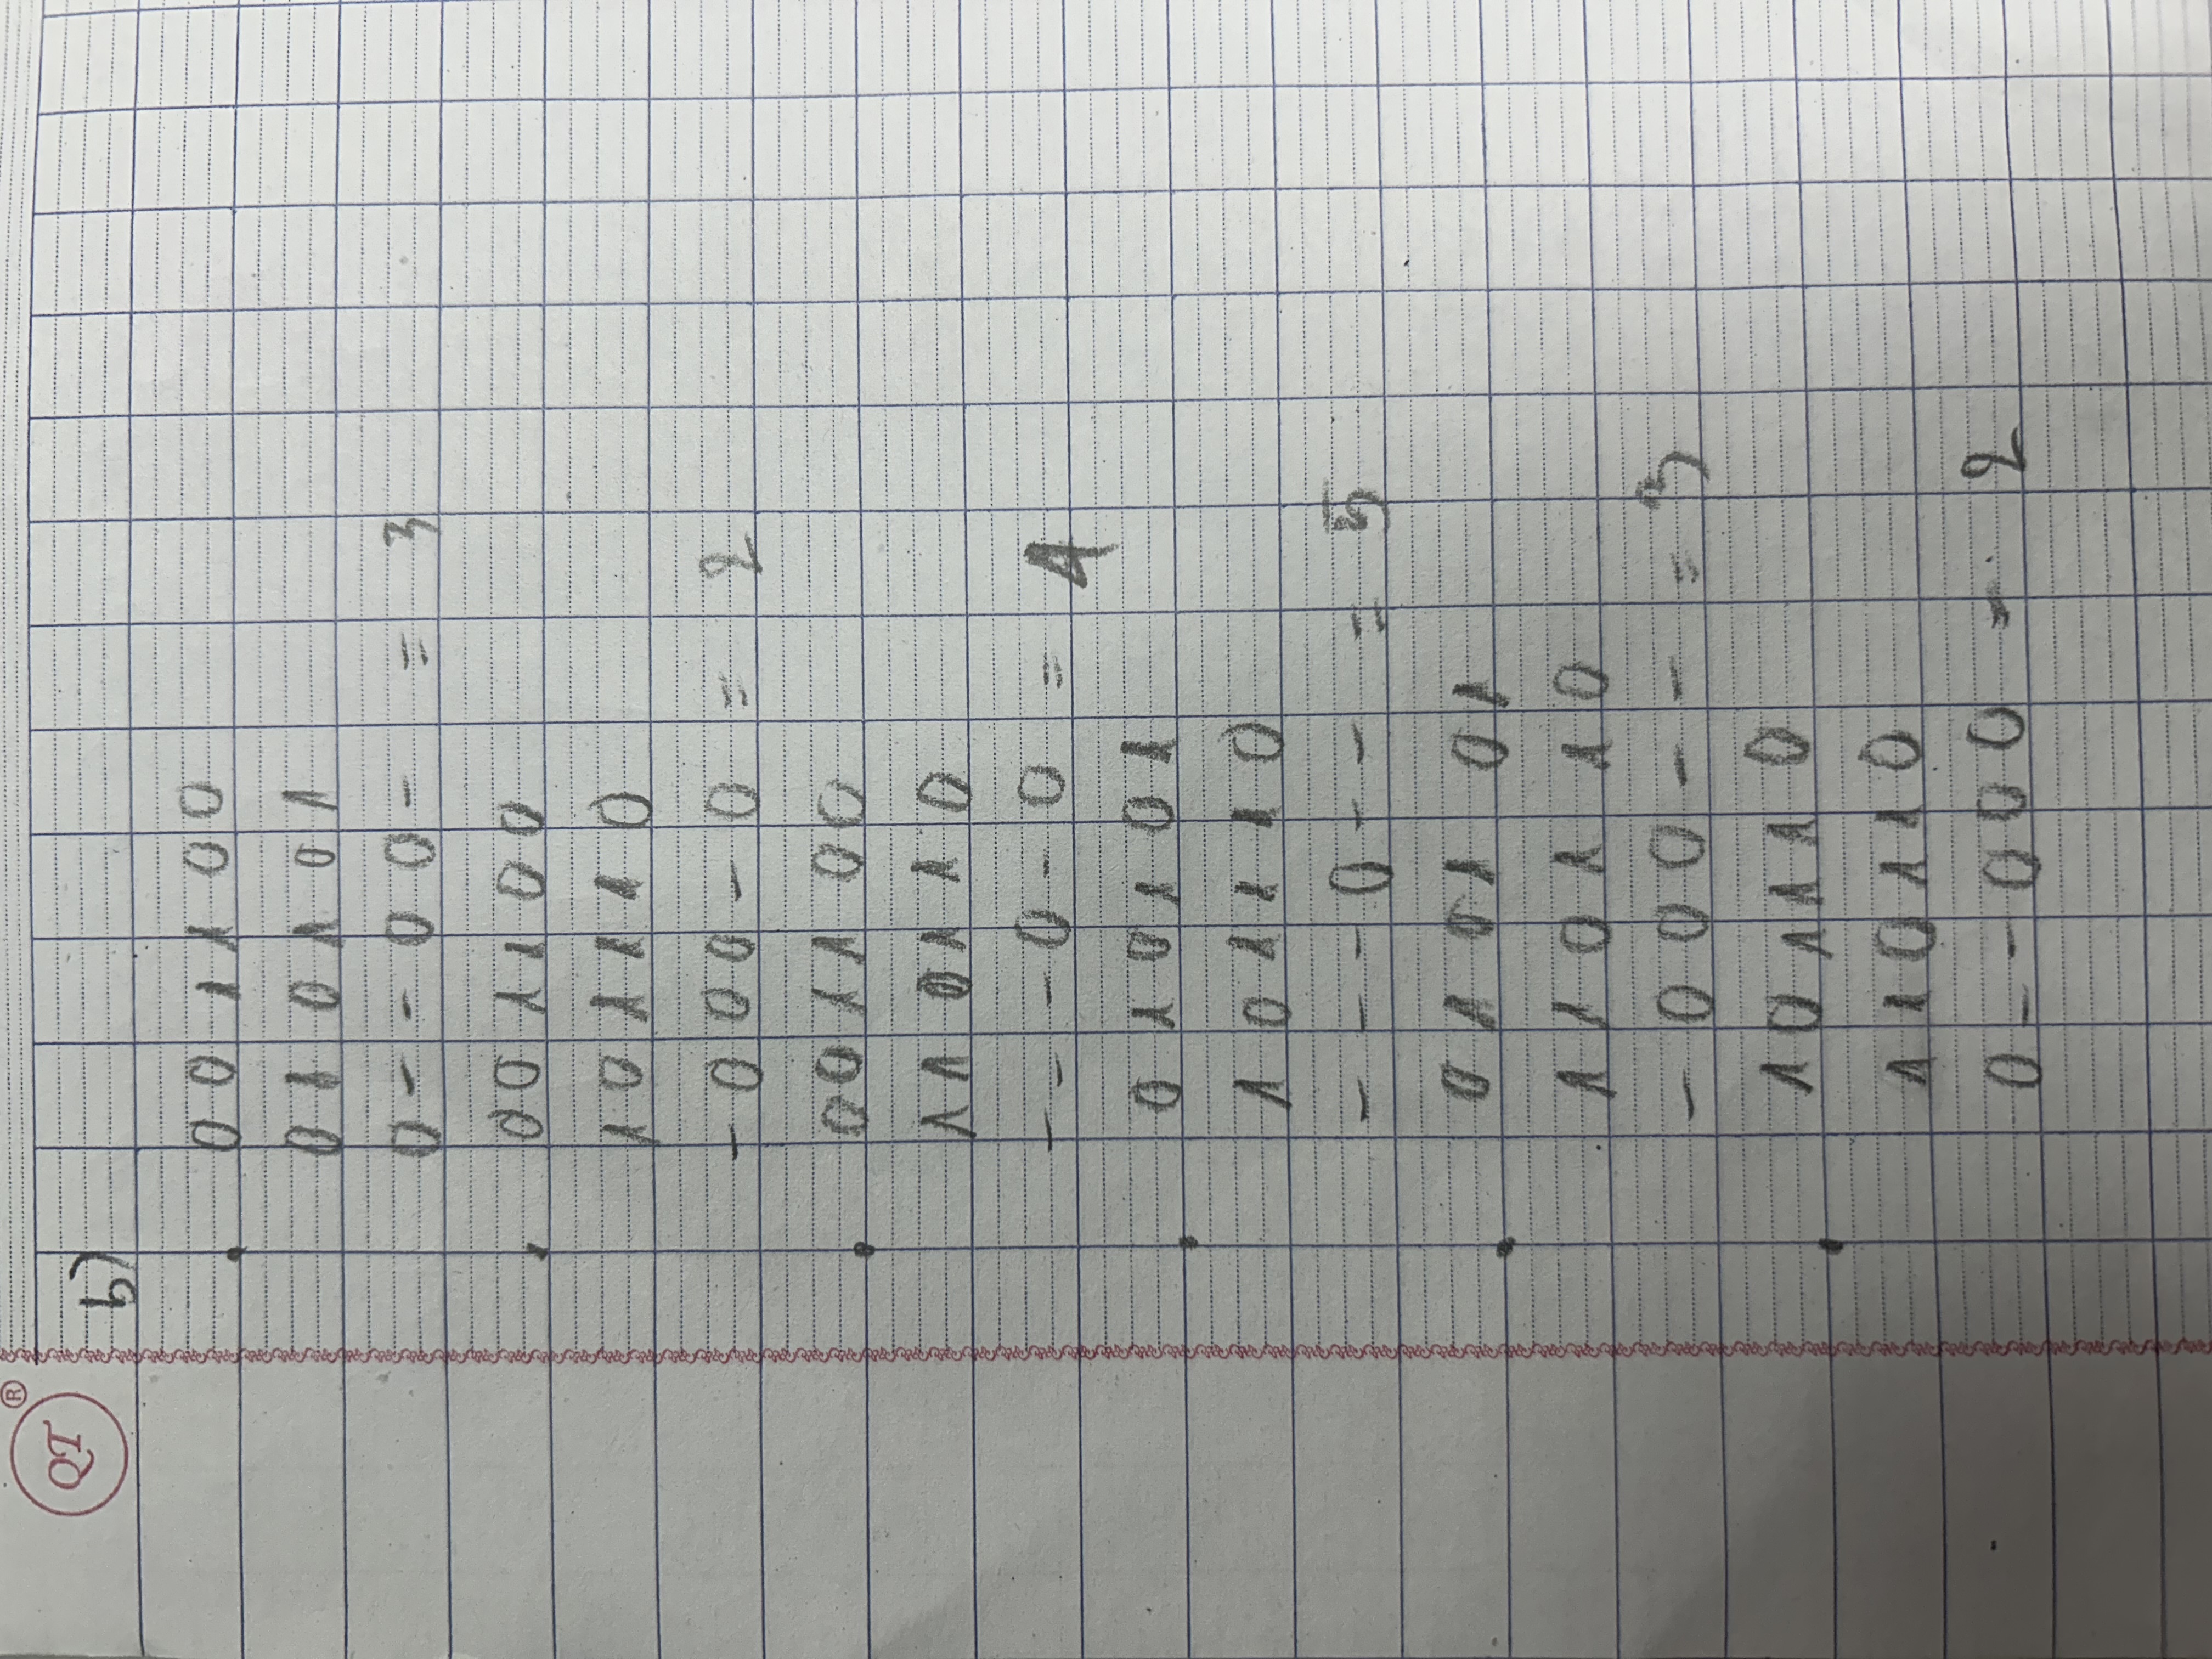 QT ®
b)
0 0 1 1 0 0
0 1 0 1 0 1
0 - - 0 0 - = 3
0 0 1 1 0 0
1 0 1 1 1 0
- 0 0 0 - 0 = 2
0 0 1 1 0 0
1 1 0 1 1 0
- - - 0 - 0 = 4
0 1 0 1 0 1
1 0 1 1 1 0
- - - 0 - - = 5
0 1 0 1 0 1
1 1 0 1 1 0
- 0 0 0 - - = 3
1 0 1 1 1 0
1 1 0 1 1 0
0 - - 0 0 0 = 2